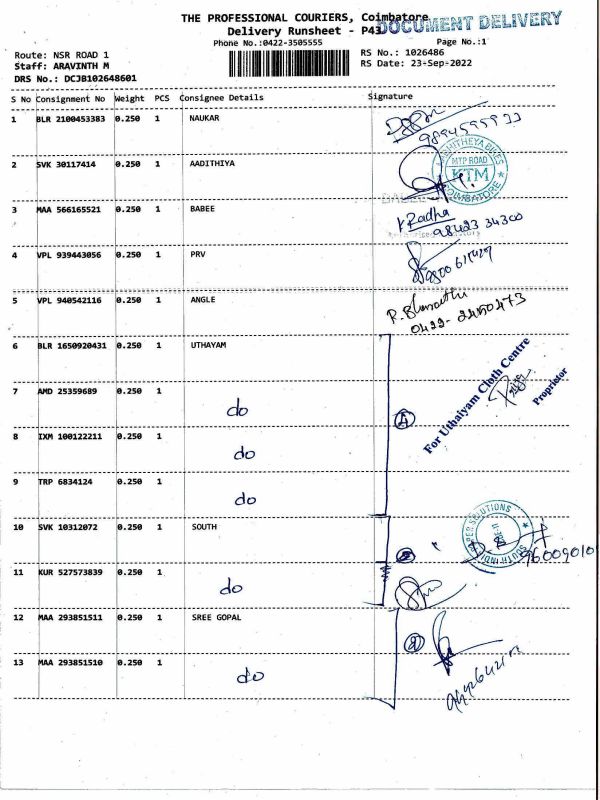 THE PROFESSIONAL COURIERS, Coimbatore
DOCUMENT DELIVERY
Delivery Runsheet - P43
Phone No.:0422-3505555
Page No.:1
Route: NSR ROAD 1
RS No.: 1026486
Staff: ARAVINTH M
RS Date: 23-Sep-2022
DRS No.: DCJB102648601
S No Consignment No Weight PCS Consignee Details Signature
1 BLR 2100453383 0.250 1 NAUKAR
2 SVK 30117414 0.250 1 AADITHIYA
MTP ROAD
KTM
COIMBATORE
3 MAA 566165521 0.250 1 BABEE
Radha
98423 34300
4 VPL 939443056 0.250 1 PRV
5 VPL 940542116 0.250 1 ANGLE
0422-2450473
6 BLR 1650920431 0.250 1 UTHAYAM
For Uthaiyam Cloth Centre
Proprietor
7 AMD 25359689 0.250 1 do
8 IXM 100122211 0.250 1 do
9 TRP 6834124 0.250 1 do
10 SVK 10312072 0.250 1 SOUTH
96009010
11 KUR 527573839 0.250 1 do
12 MAA 293851511 0.250 1 SREE GOPAL
13 MAA 293851510 0.250 1 do